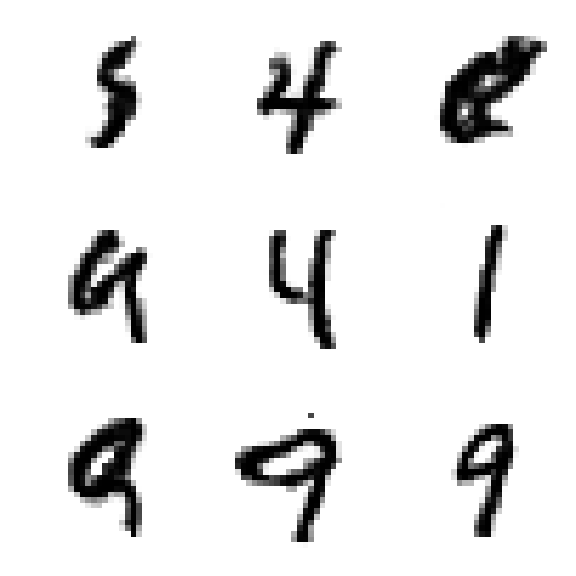 5 4
9 4 1
9 9 9